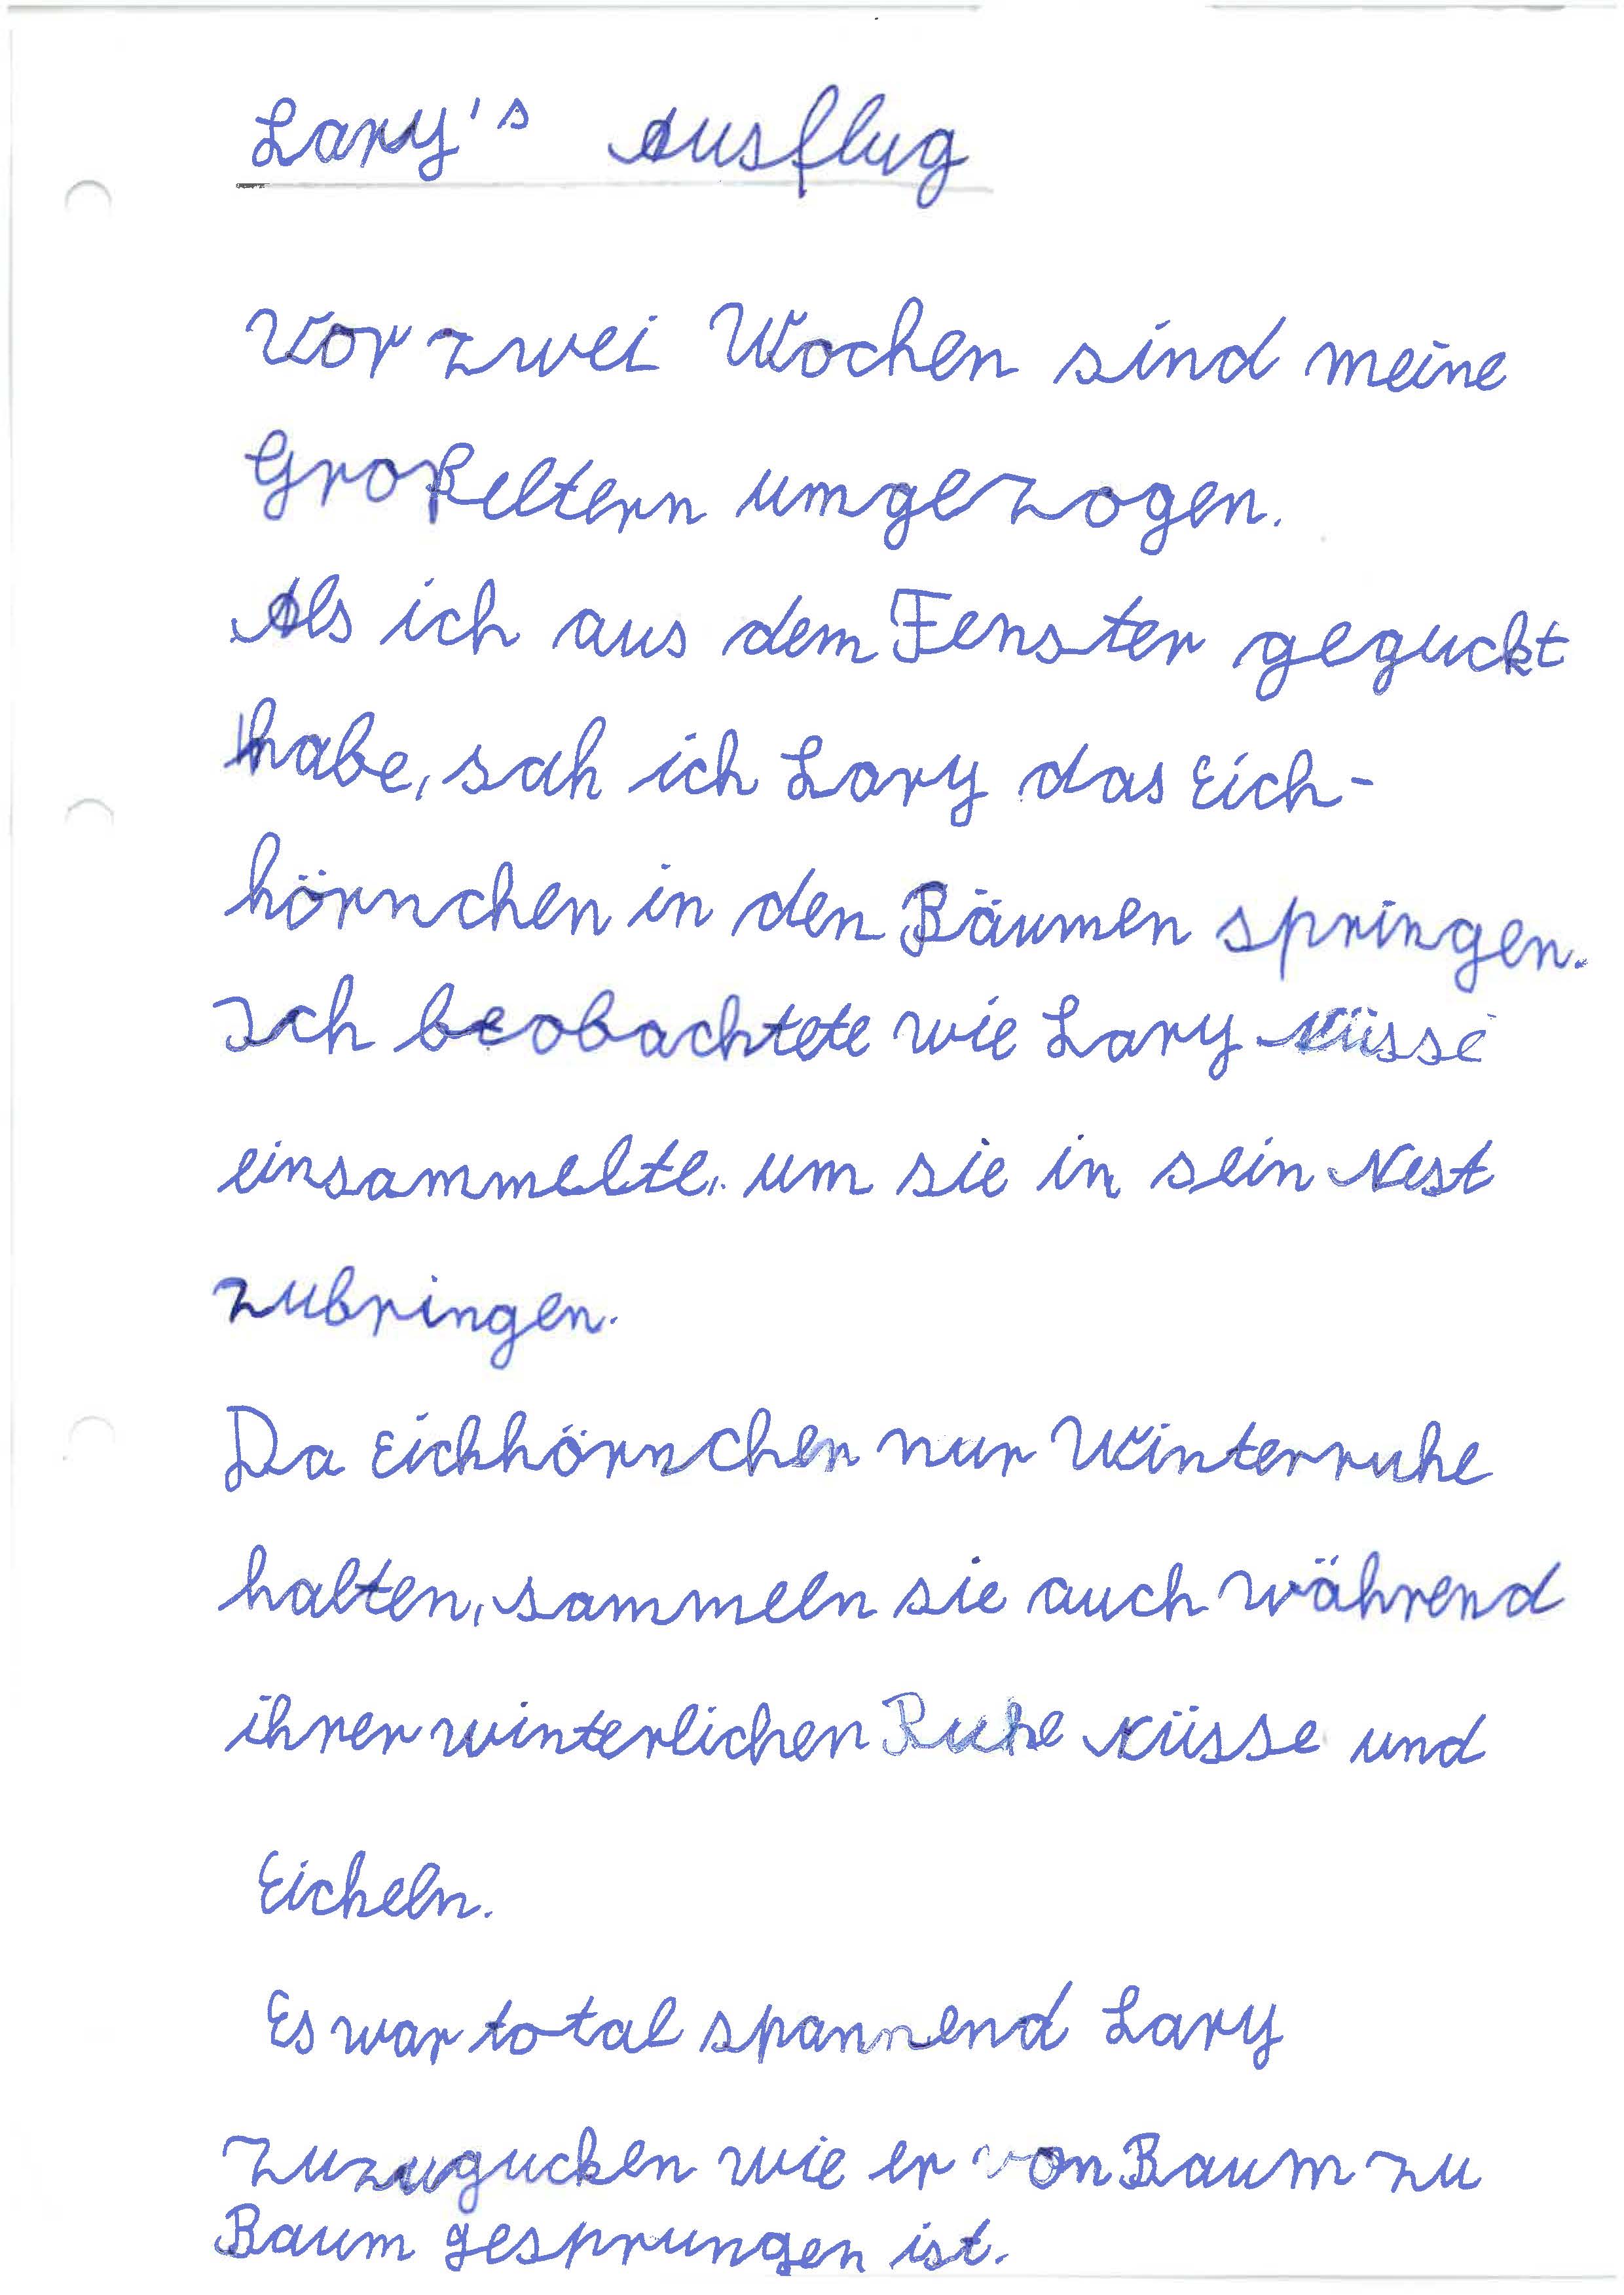 Lary's Ausflug
Vor zwei Wochen sind meine
Großeltern umgezogen.
Als ich aus dem Fenster geguckt
habe, sah ich Lary das Eich-
hörnchen in den Bäumen springen.
Ich beobachtete wie Lary Nüsse
einsammelte, um sie in sein Nest
zubringen.
Da Eichhörnchen nur Winterruhe
halten, sammeln sie auch während
ihrer winterlichen Ruhe Nüsse und
Eicheln.
Es war total spannend Lary
zuzugucken wie er von Baum zu
Baum gesprungen ist.